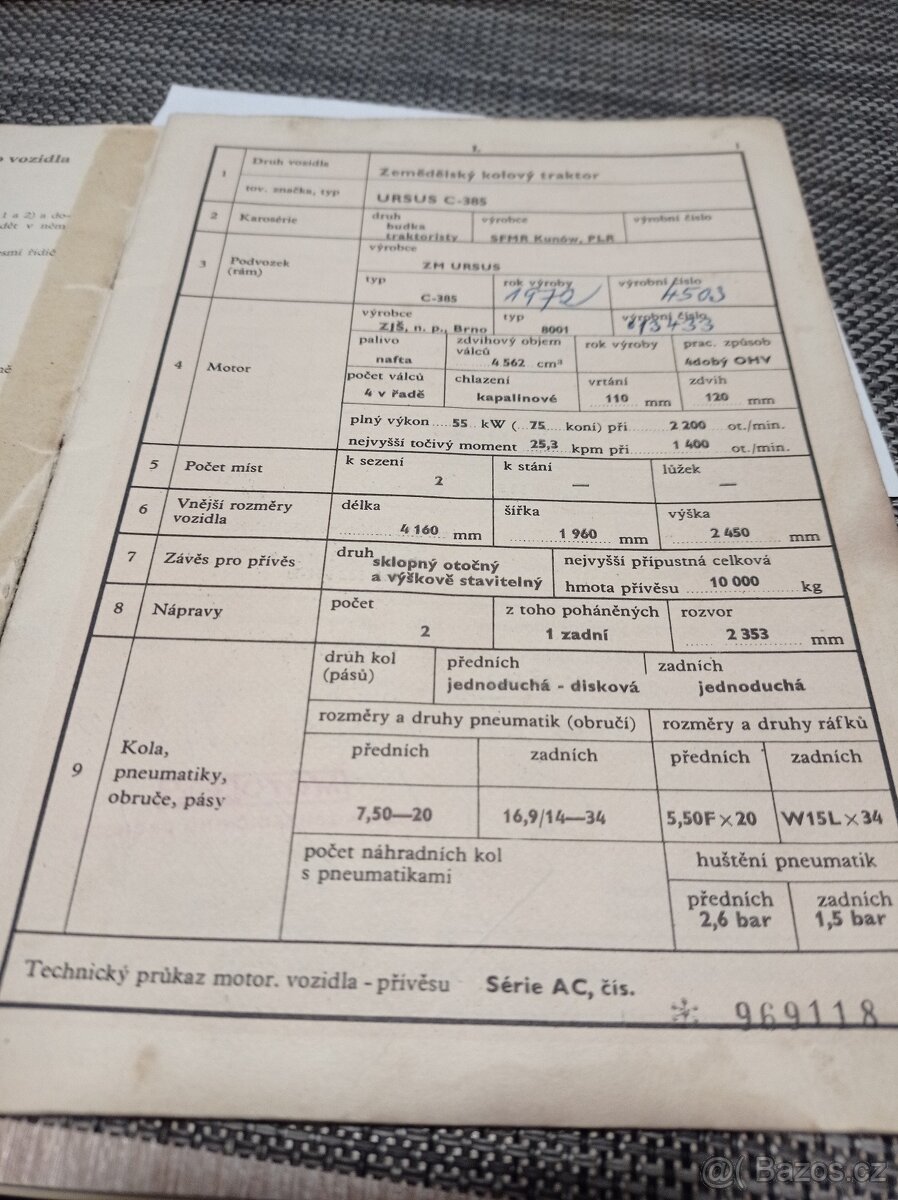 o vozidla
1 a 2) a do-
dět v něm
esmí řidič
1.
1 Druh vozidla
tov. značka, typ
Zemědělský kolový traktor
URSUS C-385
2 Karosérie druh výrobce výrobní číslo
budka
traktoristy SFMR Kunów, PLR
3 Podvozek
(rám) výrobce
ZM URSUS
typ rok výroby výrobní číslo
C-385 1972 4503
4 Motor
výrobce typ výrobní číslo
ZJŠ, n. p., Brno 8001
palivo zdvihový objem
válců rok výroby prac. způsob
nafta 4 562 cm³ 4dobý OHV
počet válců chlazení vrtání zdvih
4 v řadě kapalinové 110 mm 120 mm
plný výkon 55 kW ( 75 koní) při 2 200 ot./min.
nejvyšší točivý moment 25,3 kpm při 1 400 ot./min.
5 Počet míst k sezení k stání lůžek
2 — —
6 Vnější rozměry
vozidla délka šířka výška
4 160 mm 1 960 mm 2 450 mm
7 Závěs pro přívěs druh sklopný otočný
a výškově stavitelný
nejvyšší přípustná celková
hmota přívěsu 10 000 kg
8 Nápravy počet z toho poháněných rozvor
2 1 zadní 2 353 mm
9 Kola,
pneumatiky,
obruče, pásy
druh kol
(pásů) předních zadních
jednoduchá - disková jednoduchá
rozměry a druhy pneumatik (obručí) rozměry a druhy ráfků
předních zadních předních zadních
7,50—20 16,9/14—34 5,50F×20 W15L×34
počet náhradních kol
s pneumatikami
huštění pneumatik
předních zadních
2,6 bar 1,5 bar
Technický průkaz motor. vozidla - přívěsu Série AC, čís.
969118
Bazos.cz